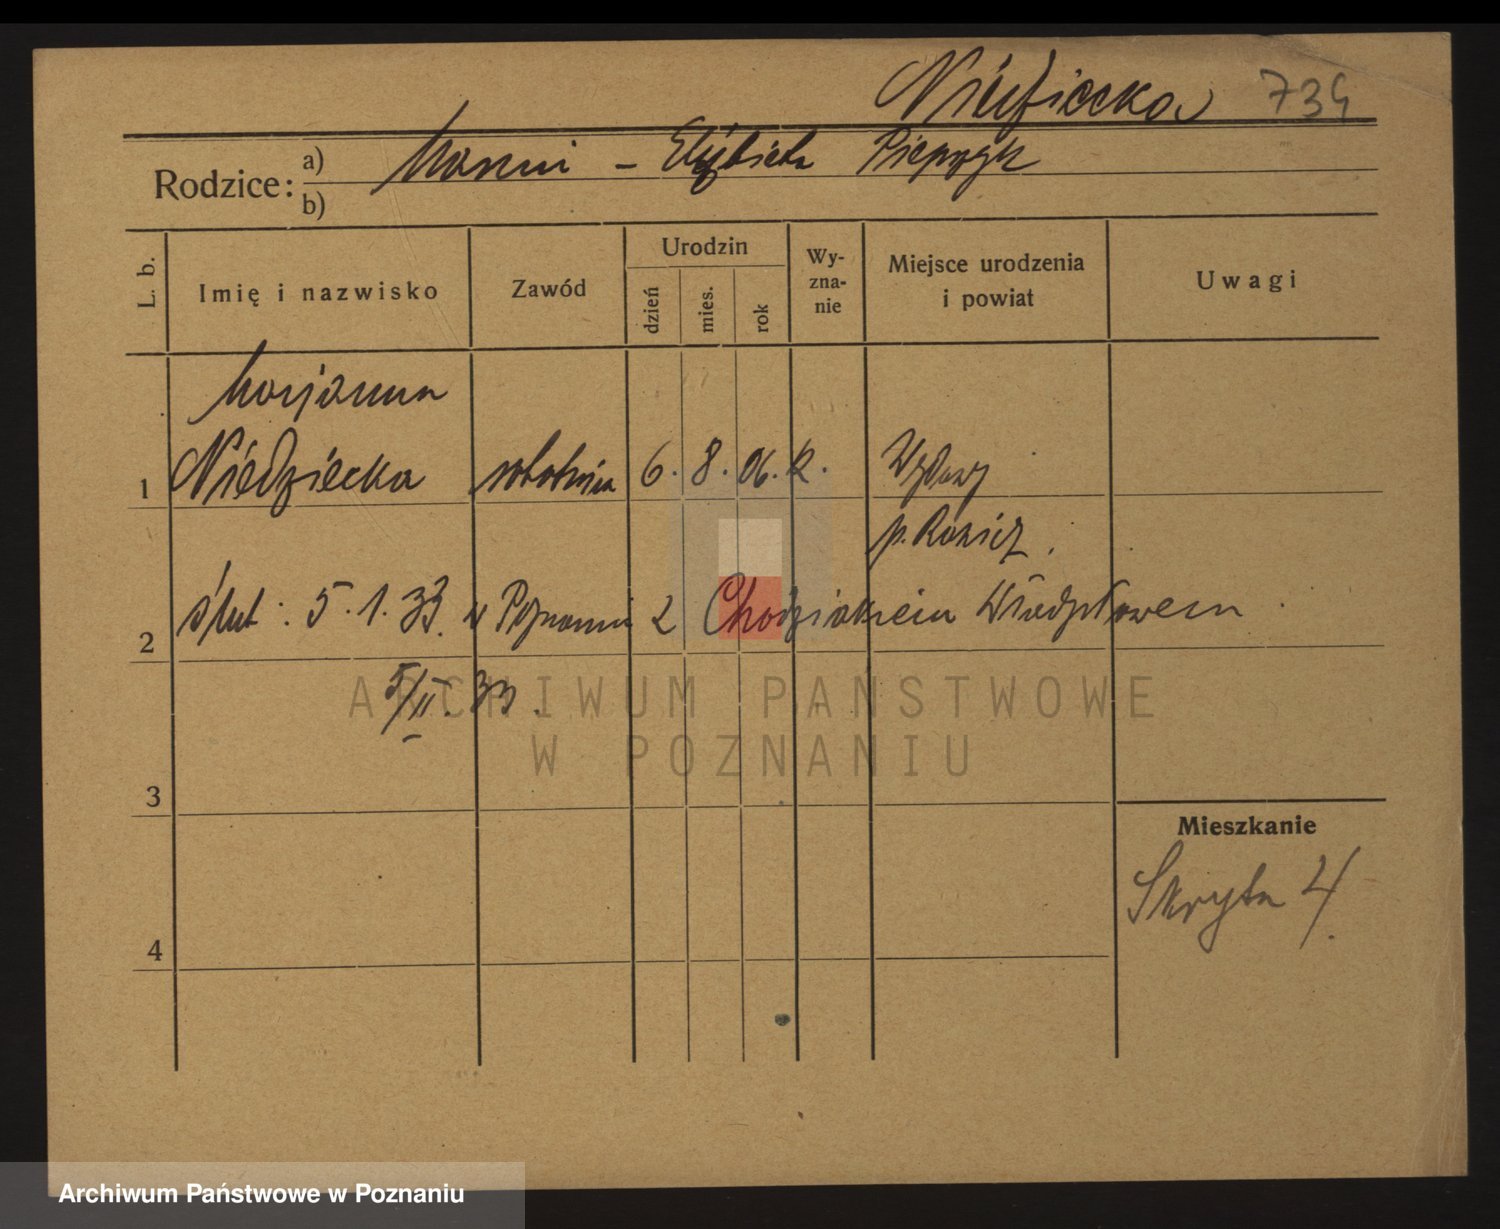 Niedziecka 739
Rodzice: a) Marcin – Elżbieta Pieprzyk
b)
L. b. Imię i nazwisko Zawód Urodzin dzień mies. rok Wy-zna-nie Miejsce urodzenia i powiat Uwagi
Marjanna
1 Niedziecka robotnica 6. 8. 06. k. Wydawy
p. Rawicz.
2 ślub: 5.1.33. w Poznaniu z Chodziakiem Władysławem.
5/II. 33.
3
Mieszkanie
Skryta 4
4
ARCHIWUM PAŃSTWOWE
W POZNANIU
Archiwum Państwowe w Poznaniu